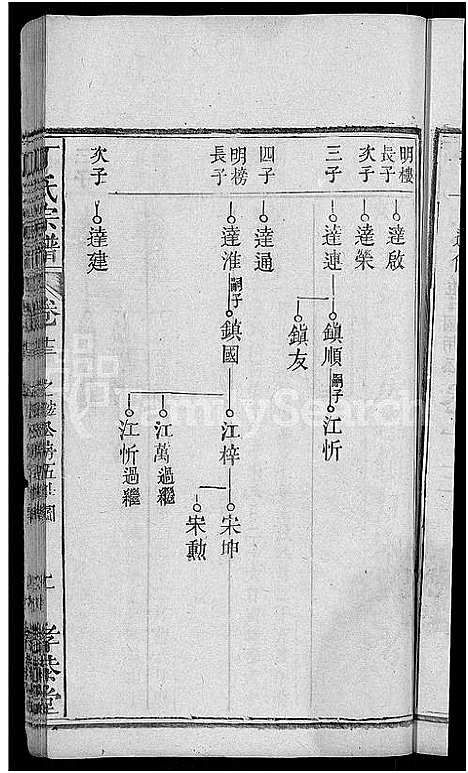 明樓
長子 達啟
次子 達榮
三子 達連
鎮順
嗣子 江忻
鎮友
四子 達通
明榜
長子 達淮
嗣子 鎮國
江梓
宋坤
宋勳
江萬過繼
江忻過繼
次子 達建
丁氏宗譜
卷十三
孝恭堂
FamilySearch